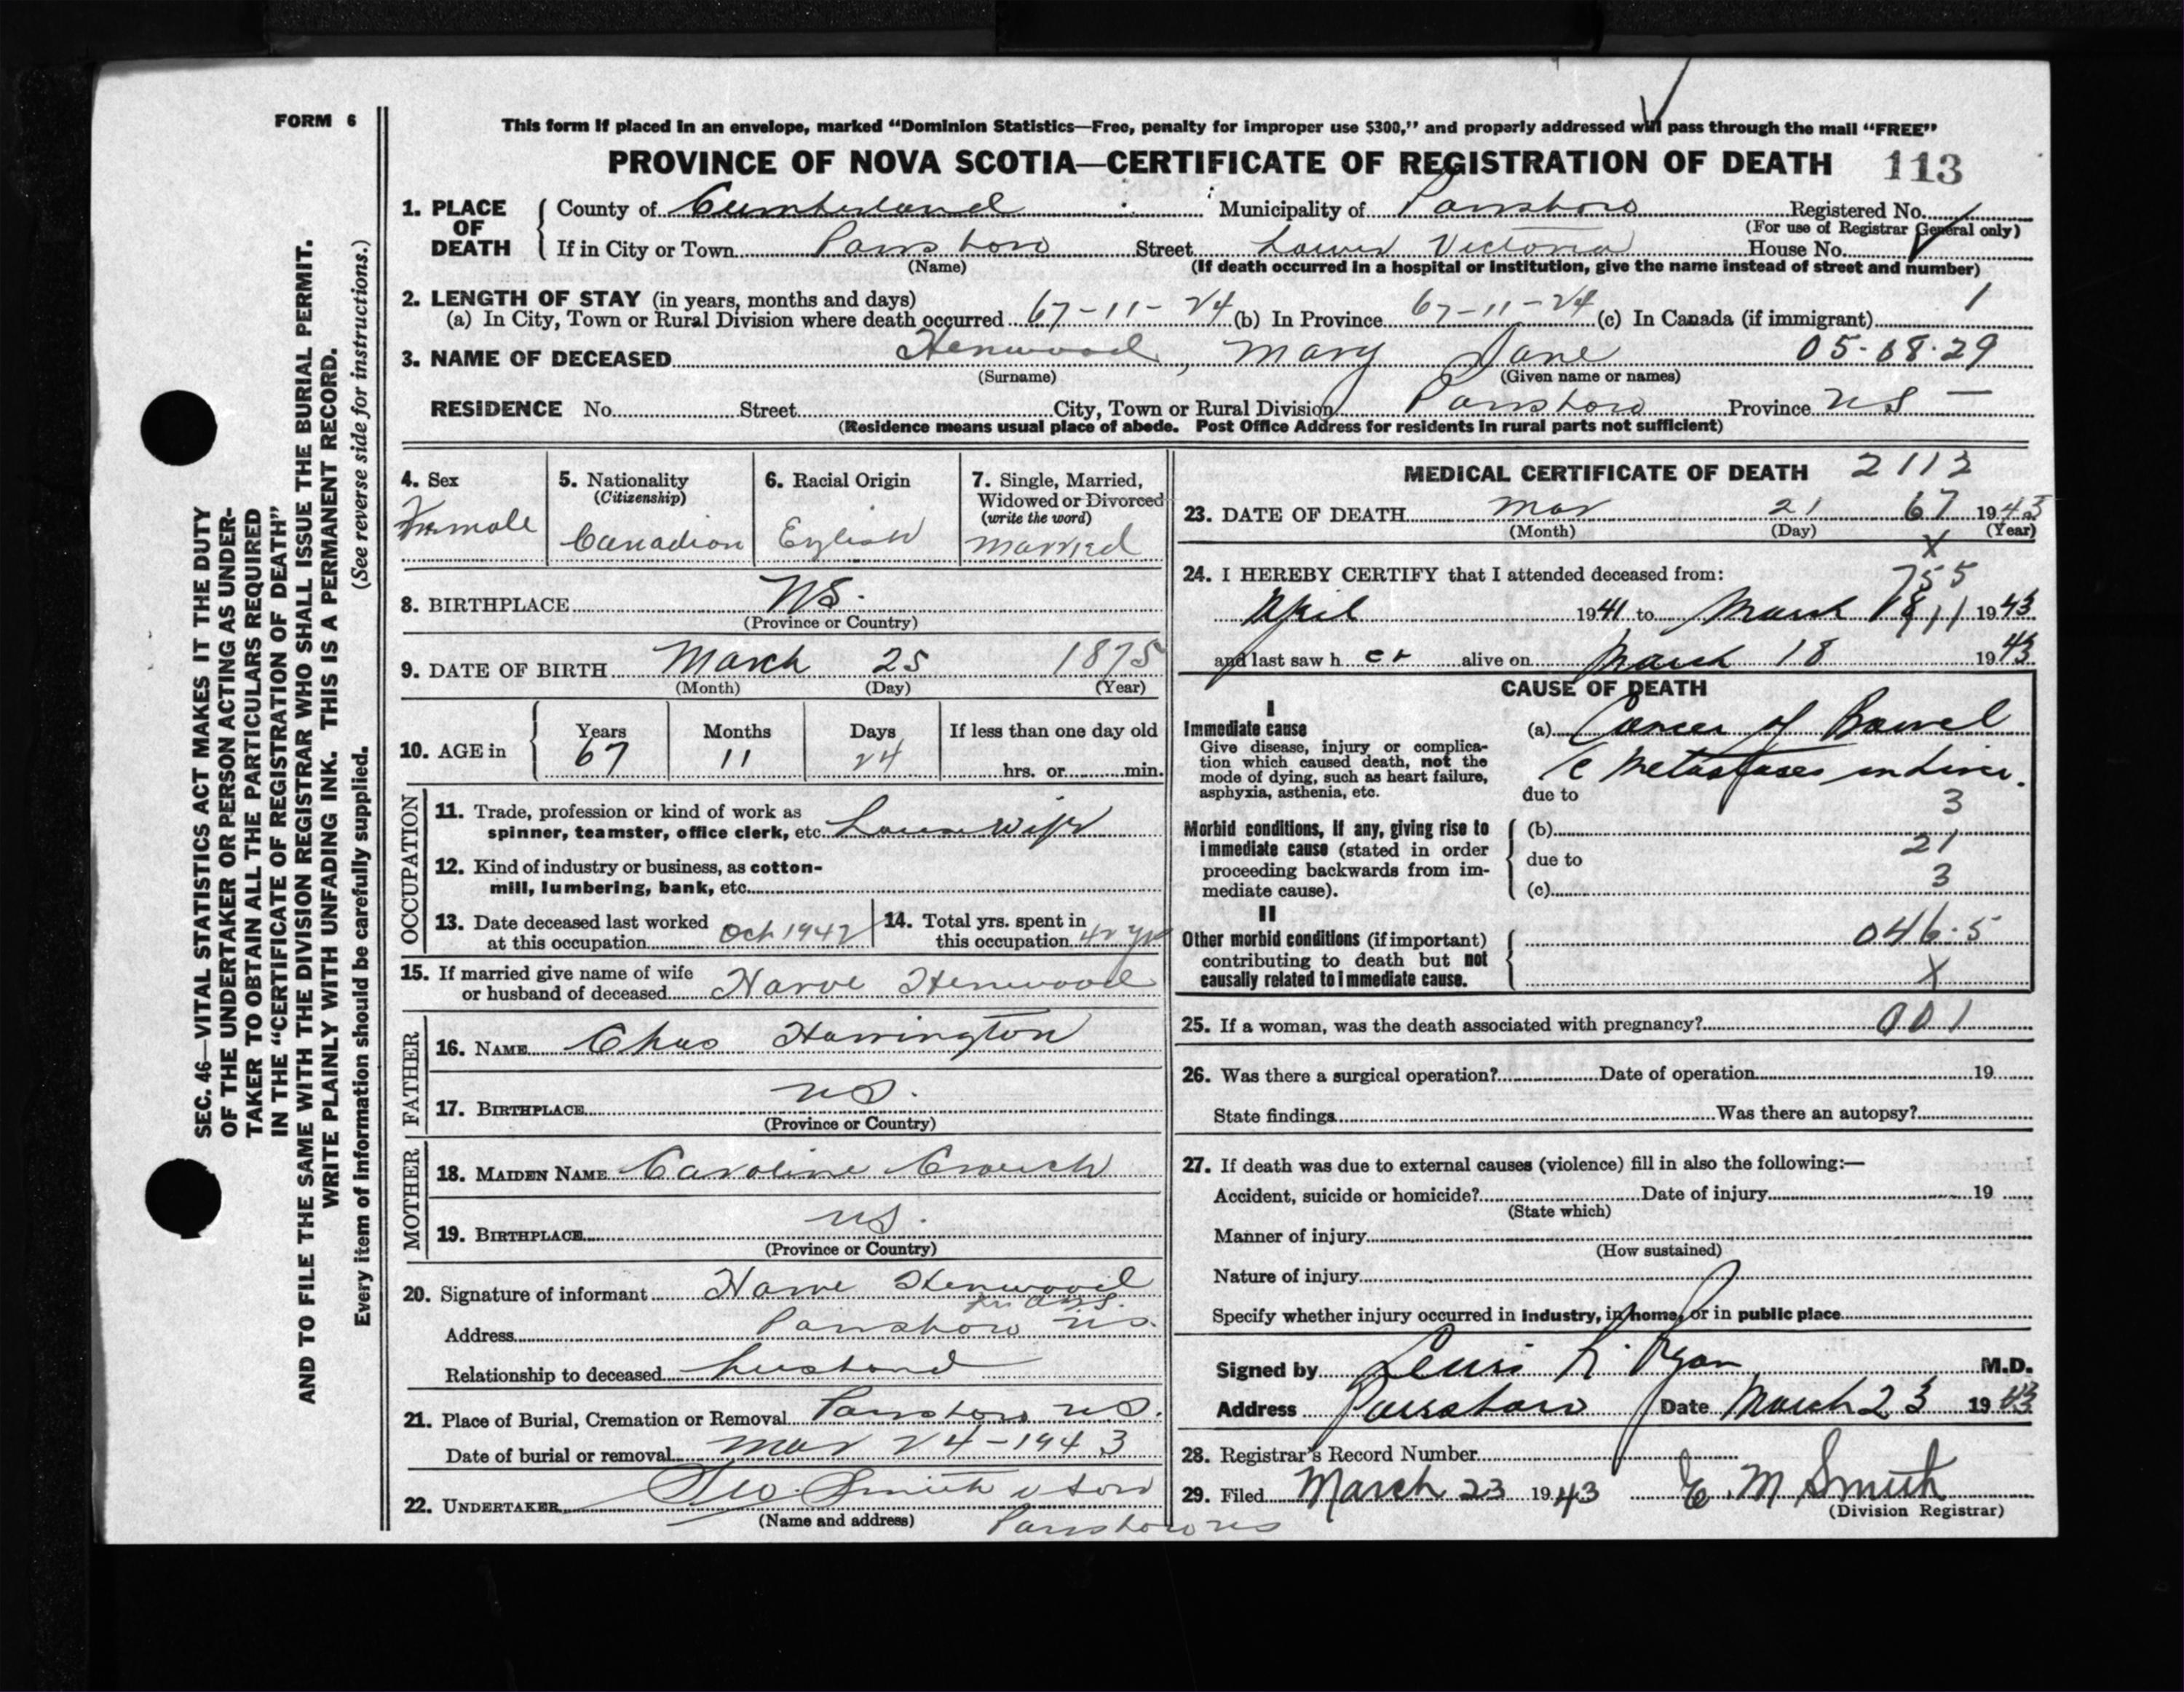 FORM 6
This form if placed in an envelope, marked "Dominion Statistics—Free, penalty for improper use $300," and properly addressed will pass through the mail "FREE"
PROVINCE OF NOVA SCOTIA—CERTIFICATE OF REGISTRATION OF DEATH 113
SEC. 46—VITAL STATISTICS ACT MAKES IT THE DUTY
OF THE UNDERTAKER OR PERSON ACTING AS UNDER-
TAKER TO OBTAIN ALL THE PARTICULARS REQUIRED
IN THE "CERTIFICATE OF REGISTRATION OF DEATH"
AND TO FILE THE SAME WITH THE DIVISION REGISTRAR WHO SHALL ISSUE THE BURIAL PERMIT.
WRITE PLAINLY WITH UNFADING INK. THIS IS A PERMANENT RECORD.
Every item of information should be carefully supplied. (See reverse side for instructions.)
1. PLACE OF DEATH County of Cumberland Municipality of Parrsboro Registered No.
(For use of Registrar General only)
If in City or Town Parrsboro Street Lower Victoria House No.
(Name)
(If death occurred in a hospital or institution, give the name instead of street and number)
2. LENGTH OF STAY (in years, months and days)
(a) In City, Town or Rural Division where death occurred 67-11-24 (b) In Province 67-11-24 (c) In Canada (if immigrant) 1
3. NAME OF DECEASED Henwood, Mary Jane 05-08-29
(Surname) (Given name or names)
RESIDENCE No. Street City, Town or Rural Division Parrsboro Province NS —
(Residence means usual place of abode. Post Office Address for residents in rural parts not sufficient)
4. Sex
Female
5. Nationality
(Citizenship)
Canadian
6. Racial Origin
English
7. Single, Married,
Widowed or Divorced
(write the word)
Married
8. BIRTHPLACE NS.
(Province or Country)
9. DATE OF BIRTH March 25 1875
(Month) (Day) (Year)
10. AGE in Years Months Days If less than one day old
67 11 24 hrs. or min.
OCCUPATION
11. Trade, profession or kind of work as
spinner, teamster, office clerk, etc. House wife
12. Kind of industry or business, as cotton-
mill, lumbering, bank, etc.
13. Date deceased last worked
at this occupation Oct 1942
14. Total yrs. spent in
this occupation 42 yrs
15. If married give name of wife
or husband of deceased Harve Henwood
FATHER
16. NAME Chas Harrington
17. BIRTHPLACE NS.
(Province or Country)
MOTHER
18. MAIDEN NAME Caroline Crouch
19. BIRTHPLACE NS.
(Province or Country)
20. Signature of informant Harve Henwood
Address Parrsboro NS.
Relationship to deceased husband
21. Place of Burial, Cremation or Removal Parrsboro NS.
Date of burial or removal Mar 24-1943
22. UNDERTAKER Geo. Smith & Son
(Name and address) Parrsboro NS
MEDICAL CERTIFICATE OF DEATH 2112
23. DATE OF DEATH Mar 21 67 1943
(Month) (Day) (Year)
X
24. I HEREBY CERTIFY that I attended deceased from: 755
April 1941 to March 18 11 1943
and last saw h er alive on March 18 1943
CAUSE OF DEATH
I
Immediate cause
Give disease, injury or complica-
tion which caused death, not the
mode of dying, such as heart failure,
asphyxia, asthenia, etc.
(a) Cancer of Bowel
c Metastases in Liver.
due to 3
Morbid conditions, if any, giving rise to
immediate cause (stated in order
proceeding backwards from im-
mediate cause).
(b)
due to 21
(c) 3
II
Other morbid conditions (if important)
contributing to death but not
causally related to immediate cause.
046.5
X
25. If a woman, was the death associated with pregnancy? 001
26. Was there a surgical operation? Date of operation 19
State findings Was there an autopsy?
27. If death was due to external causes (violence) fill in also the following:—
Accident, suicide or homicide? Date of injury 19
(State which)
Manner of injury
(How sustained)
Nature of injury
Specify whether injury occurred in industry, in home, or in public place
Signed by Lewis R. Ryan M.D.
Address Parrsboro Date March 23 1943
28. Registrar's Record Number
29. Filed March 23 1943 E. M. Smith
(Division Registrar)